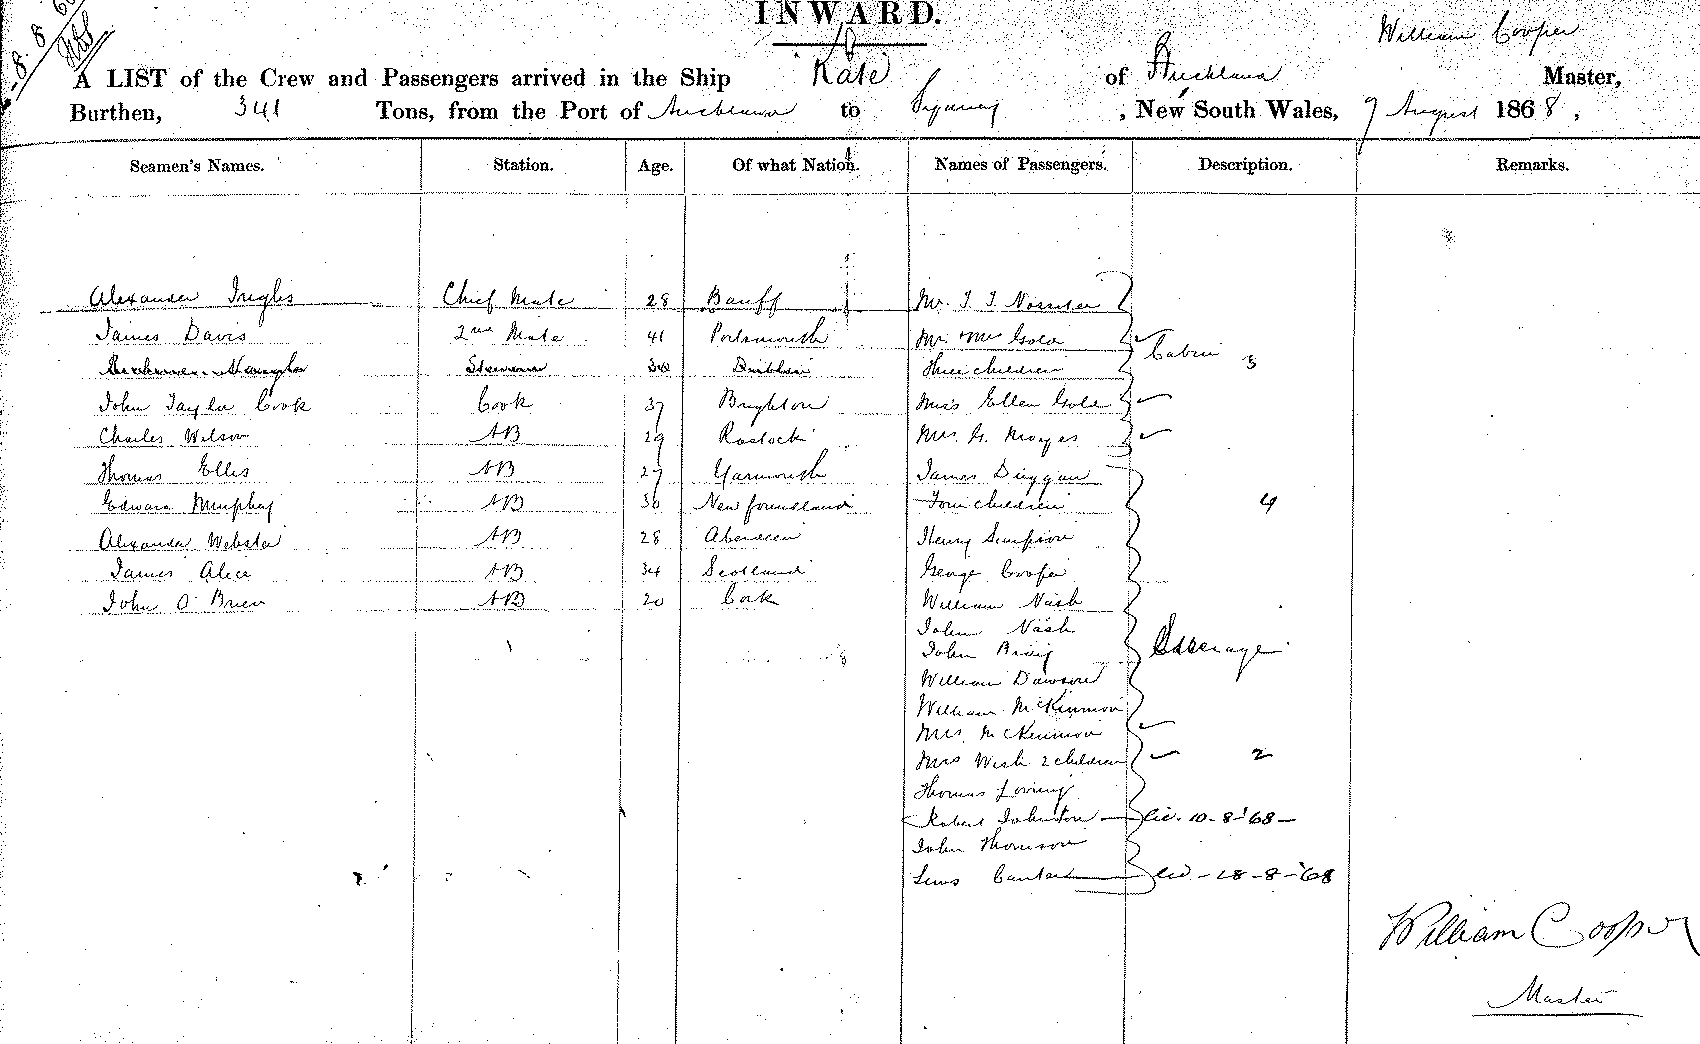 INWARD.
William Cooper
A LIST of the Crew and Passengers arrived in the Ship Kate of Auckland Master,
Burthen, 341 Tons, from the Port of Auckland to Sydney, New South Wales, 7 August 1868,
Seamen's Names. Station. Age. Of what Nation. Names of Passengers. Description. Remarks.
Alexander Inglis Chief Mate 28 Banff Mr. J. J.
James Davis 2nd Mate 41 Portsmouth Mr. Mrs Gold
Steward Dublin Three children Cabin 3
John Taylor Cook Cook 37 Brighton Miss Ellen Gold
Charles Wilson AB 29 Rostock Mrs. G. Moyes
Thomas Ellis AB 27 Yarmouth James Duggan
Edward Murphy AB 30 Newfoundland Four children 4
Alexander Webster AB 28 Aberdeen Henry Simpson
James Alice AB 34 Scotland George Cooper
John O'Brien AB 20 Cork William Nash
John Nash
John Steerage
William Dawson
William McKinnon
Mrs. McKinnon
Mrs 2 children 2
Thomas
Robert Johnston 10-8-'68-
John Thomson
Lewis -18-8-'68
William Cooper
Master